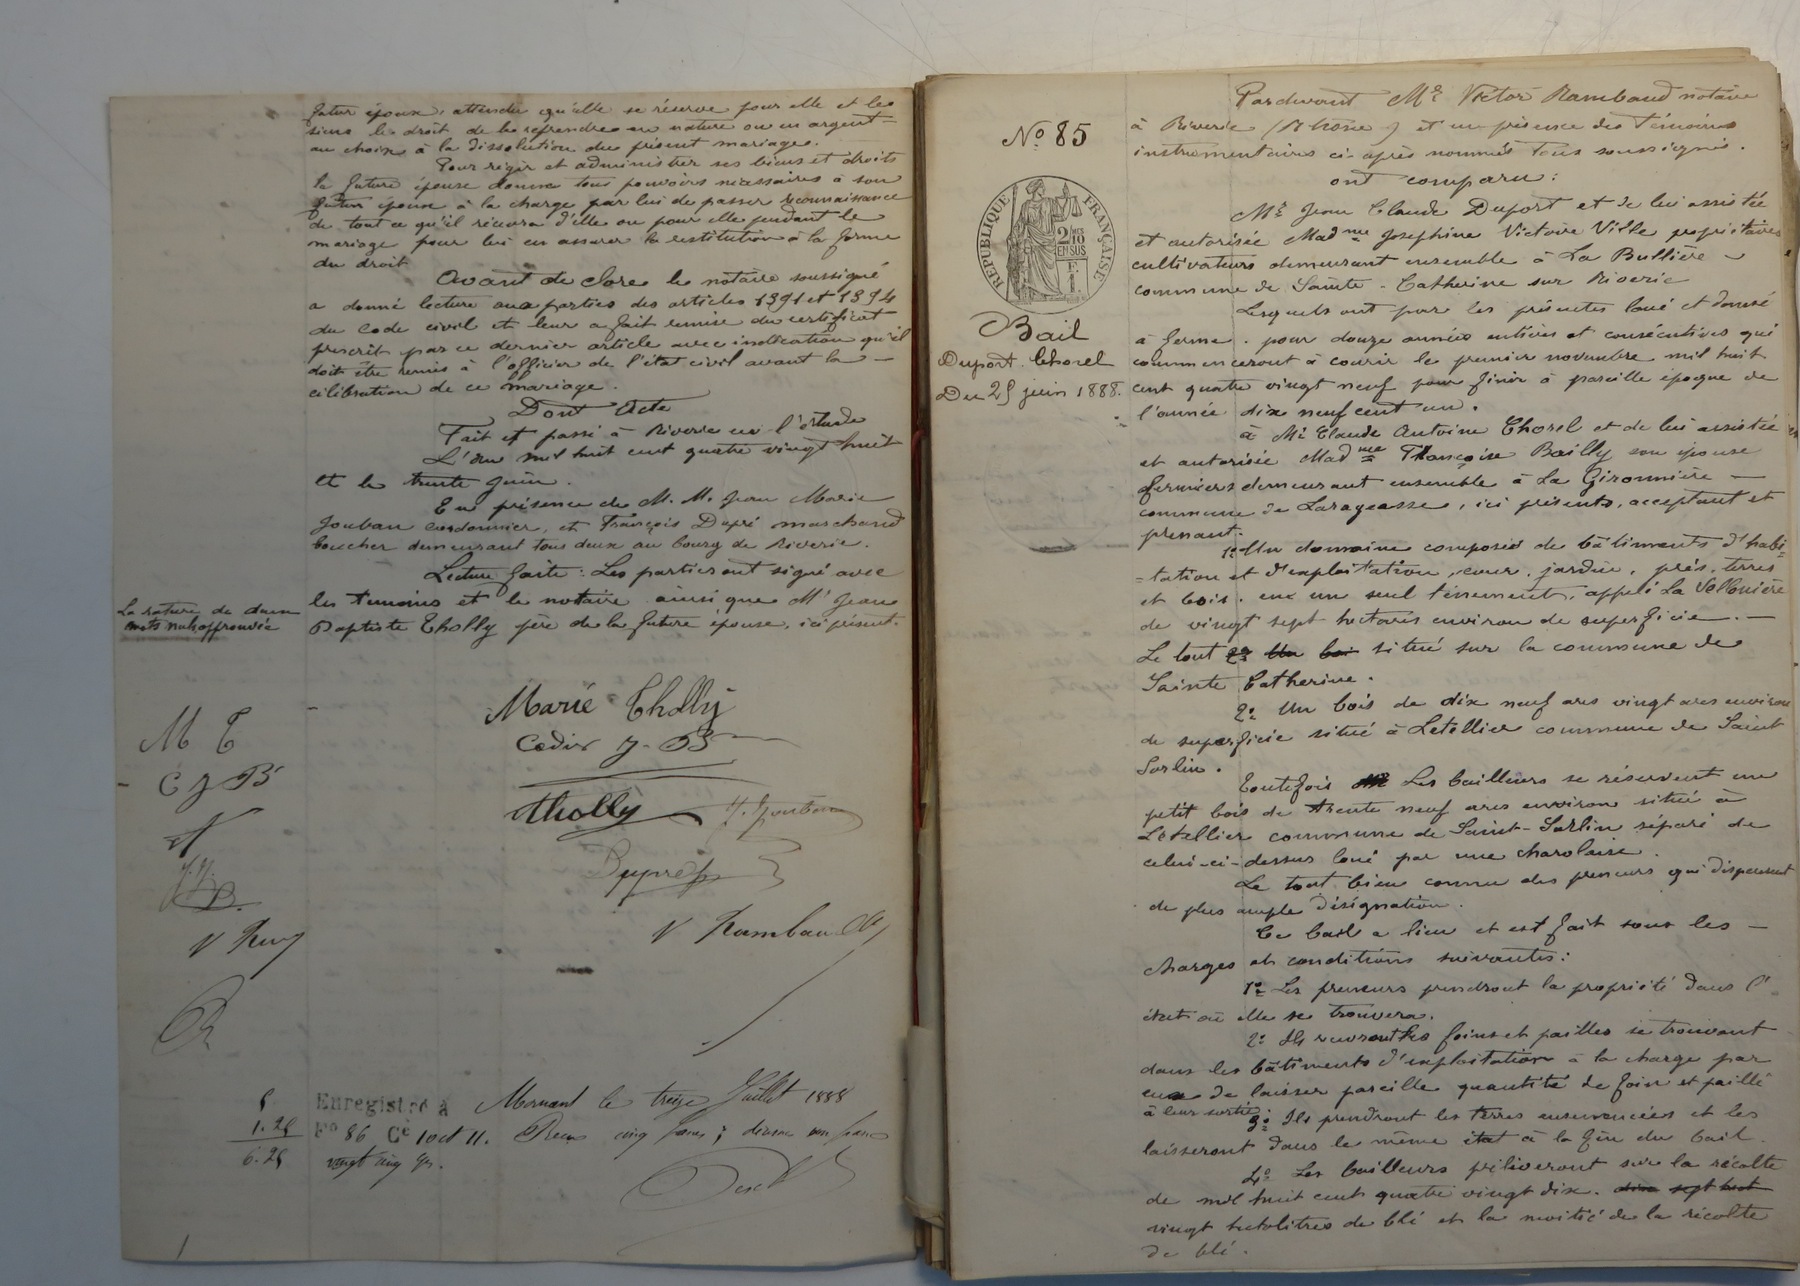 futur époux, attendu qu'elle se réserve pour elle et les
siens le droit de les reprendre en nature ou en argent
au choix à la dissolution du présent mariage.
Pour régir et administrer ses biens et droits
la future épouse donne tous pouvoirs nécessaires à son
futur époux à la charge par lui de passer reconnaissance
de tout ce qu'il recevra d'elle ou pour elle pendant le
mariage pour lui en assurer la restitution à la forme
du droit
Avant de clore le notaire soussigné
a donné lecture aux parties des articles 1391 et 1394
du Code civil et leur a fait remise du certificat
prescrit par ce dernier article avec indication qu'il
doit être remis à l'officier de l'état civil avant la
célébration de ce mariage.
Dont Acte
Fait et passé à Riverie en l'étude
L'an mil huit cent quatre vingt huit
et le trente juin.
En présence de M. M. Jean Marie
Jouban cordonnier, et François Dupré marchand
boucher demeurant tous deux au bourg de Riverie.
Lecture faite : Les parties ont signé avec
les témoins et le notaire ainsi que Mr Jean
Baptiste Tholly père de la future épouse, ici présent.
La rature de
mots nuls approuvée
Marie Tholly
J. B
Tholly
Dupré
V Rambaud
M T
C J B
5
1.25
6.25
Enregistré à Mornant le treize Juillet 1888
Fo 86 Ce 1 oct 11. Reçu cinq francs; décimes un franc
vingt cinq
No 85
REPUBLIQUE FRANÇAISE
2/10
EN SUS
F.
1.
Bail
Duport. Thorel
Du 25 juin 1888.
Pardevant Me Victor Rambaud notaire
à Riverie (Rhône) et en présence des témoins
instrumentaires ci-après nommés tous soussignés.
ont comparu :
Mr Jean Claude Duport et de lui assistée
et autorisée Madme Josephine Victoire Ville propriétaires
cultivateurs demeurant ensemble à La Bullière
commune de Sainte-Catherine sur Riverie
Lesquels ont par les présentes loué et donné
à ferme. pour douze années entières et consécutives qui
commenceront à courir le premier novembre mil huit
cent quatre vingt neuf pour finir à pareille époque de
l'année dix neuf cent un.
à Mr Claude Antoine Thorel et de lui assistée
et autorisée Madme Françoise Bailly son épouse
fermiers demeurant ensemble à La Gironnière
commune de Larageasse, ici présents, acceptant et
prenant.
1o Un domaine composé de bâtiments d'habi=
=tation et d'exploitation, cour, jardin, prés, terres
et bois. en un seul tènement, appelé La
de vingt sept hectares environ de superficie.
Le tout 2o Un bois situé sur la commune de
Sainte Catherine.
2o Un bois de dix neuf ares vingt ares environ
de superficie situé à Letellier commune de Saint
Sorlin.
Toutefois Les bailleurs se réservent un
petit bois de trente neuf ares environ situé à
Letellier commune de Saint-Sorlin séparé de
celui-ci-dessus loué par une charolaise.
Le tout bien connu des preneurs qui dispensent
de plus ample désignation.
Ce bail a lieu et est fait sous les
charges et conditions suivantes :
1o Les preneurs prendront la propriété dans l'
état où elle se trouvera.
2o Ils recevront les foins et pailles se trouvant
dans les bâtiments d'exploitation à la charge par
eux de laisser pareille quantité de foin et paille
à leur sortie
3o Ils prendront les terres ensemencées et les
laisseront dans le même état à la fin du bail.
4o Les bailleurs préleveront sur la récolte
de mil huit cent quatre vingt dix. dix sept hect
vingt hectolitres de blé et la moitié de la récolte
de blé.